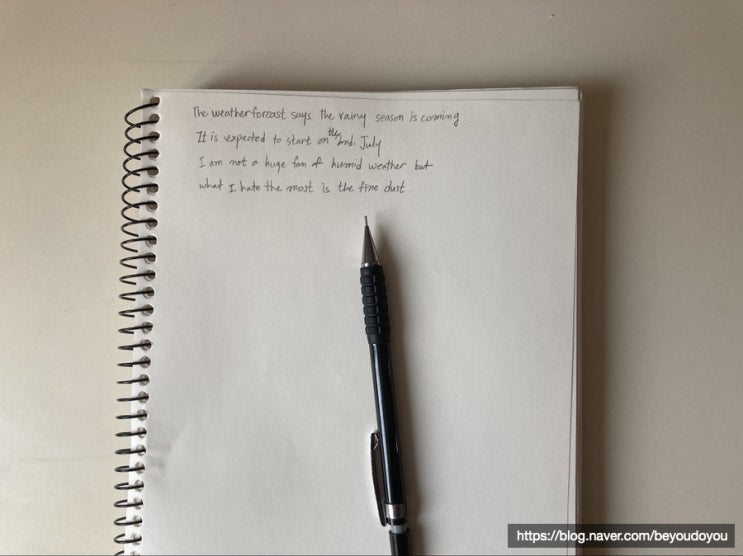 The weather forcast says the rainy season is coming
It is expected to start on the 2nd. July
I am not a huge fan of humid weather but
what I hate the most is the fine dust.
https://blog.naver.com/beyoudoyou